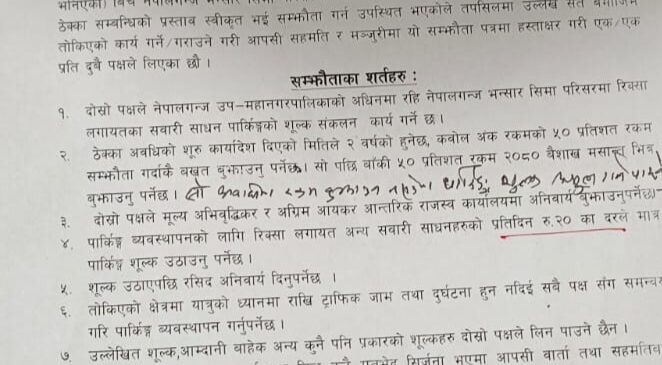 ठेक्का सम्बन्धिको प्रस्ताव स्वीकृत भई सम्झौता गर्न उपस्थित भएकोले तपसिलमा उल्लेख
तोकिएको कार्य गर्ने/गराउने गरी आपसी सहमति र मञ्जुरीमा यो सम्झौता पत्रमा हस्ताक्षर गरी एक/एक
प्रति दुबै पक्षले लिएका छौ ।
सम्झौताका शर्तहरु :
१. दोस्रो पक्षले नेपालगन्ज उप-महानगरपालिकाको अधिनमा रहि नेपालगन्ज भन्सार सिमा परिसरमा रिक्सा
लगायतका सवारी साधन पार्किङ्गको शूल्क संकलन कार्य गर्ने छ ।
२. ठेक्का अवधिको शूरु कार्यादेश दिएको मितिले २ वर्षको हुनेछ, कवोल अंक रकमको ५० प्रतिशत रकम
सम्झौता गर्दाकै बखत बुझाउनु पर्नेछ। सो पछि बाँकी ५० प्रतिशत रकम २०८० बैशाख मसान्त भित्र
बुझाउनु पर्नेछ । सो
३. दोस्रो पक्षले मूल्य अभिवृद्धिकर र अग्रिम आयकर आन्तरिक राजस्व कार्यालयमा अनिवार्य बुझाउनुपर्नेछ।
४. पार्किङ्ग व्यवस्थापनको लागि रिक्सा लगायत अन्य सवारी साधनहरुको प्रतिदिन रु.२० का दरले मात्र
पार्किङ्ग शूल्क उठाउनु पर्नेछ ।
५. शूल्क उठाएपछि रसिद अनिवार्य दिनुपर्नेछ ।
६. तोकिएको क्षेत्रमा यात्रुको ध्यानमा राखि ट्राफिक जाम तथा दुर्घटना हुन नदिई सबै पक्ष संग
गरि पार्किङ्ग व्यवस्थापन गर्नुपर्नेछ ।
७. उल्लेखित शूल्क,आम्दानी बाहेक अन्य कुनै पनि प्रकारको शूल्कहरु दोस्रो पक्षले लिन पाउने छैन ।
भएमा आपसी वार्ता तथा